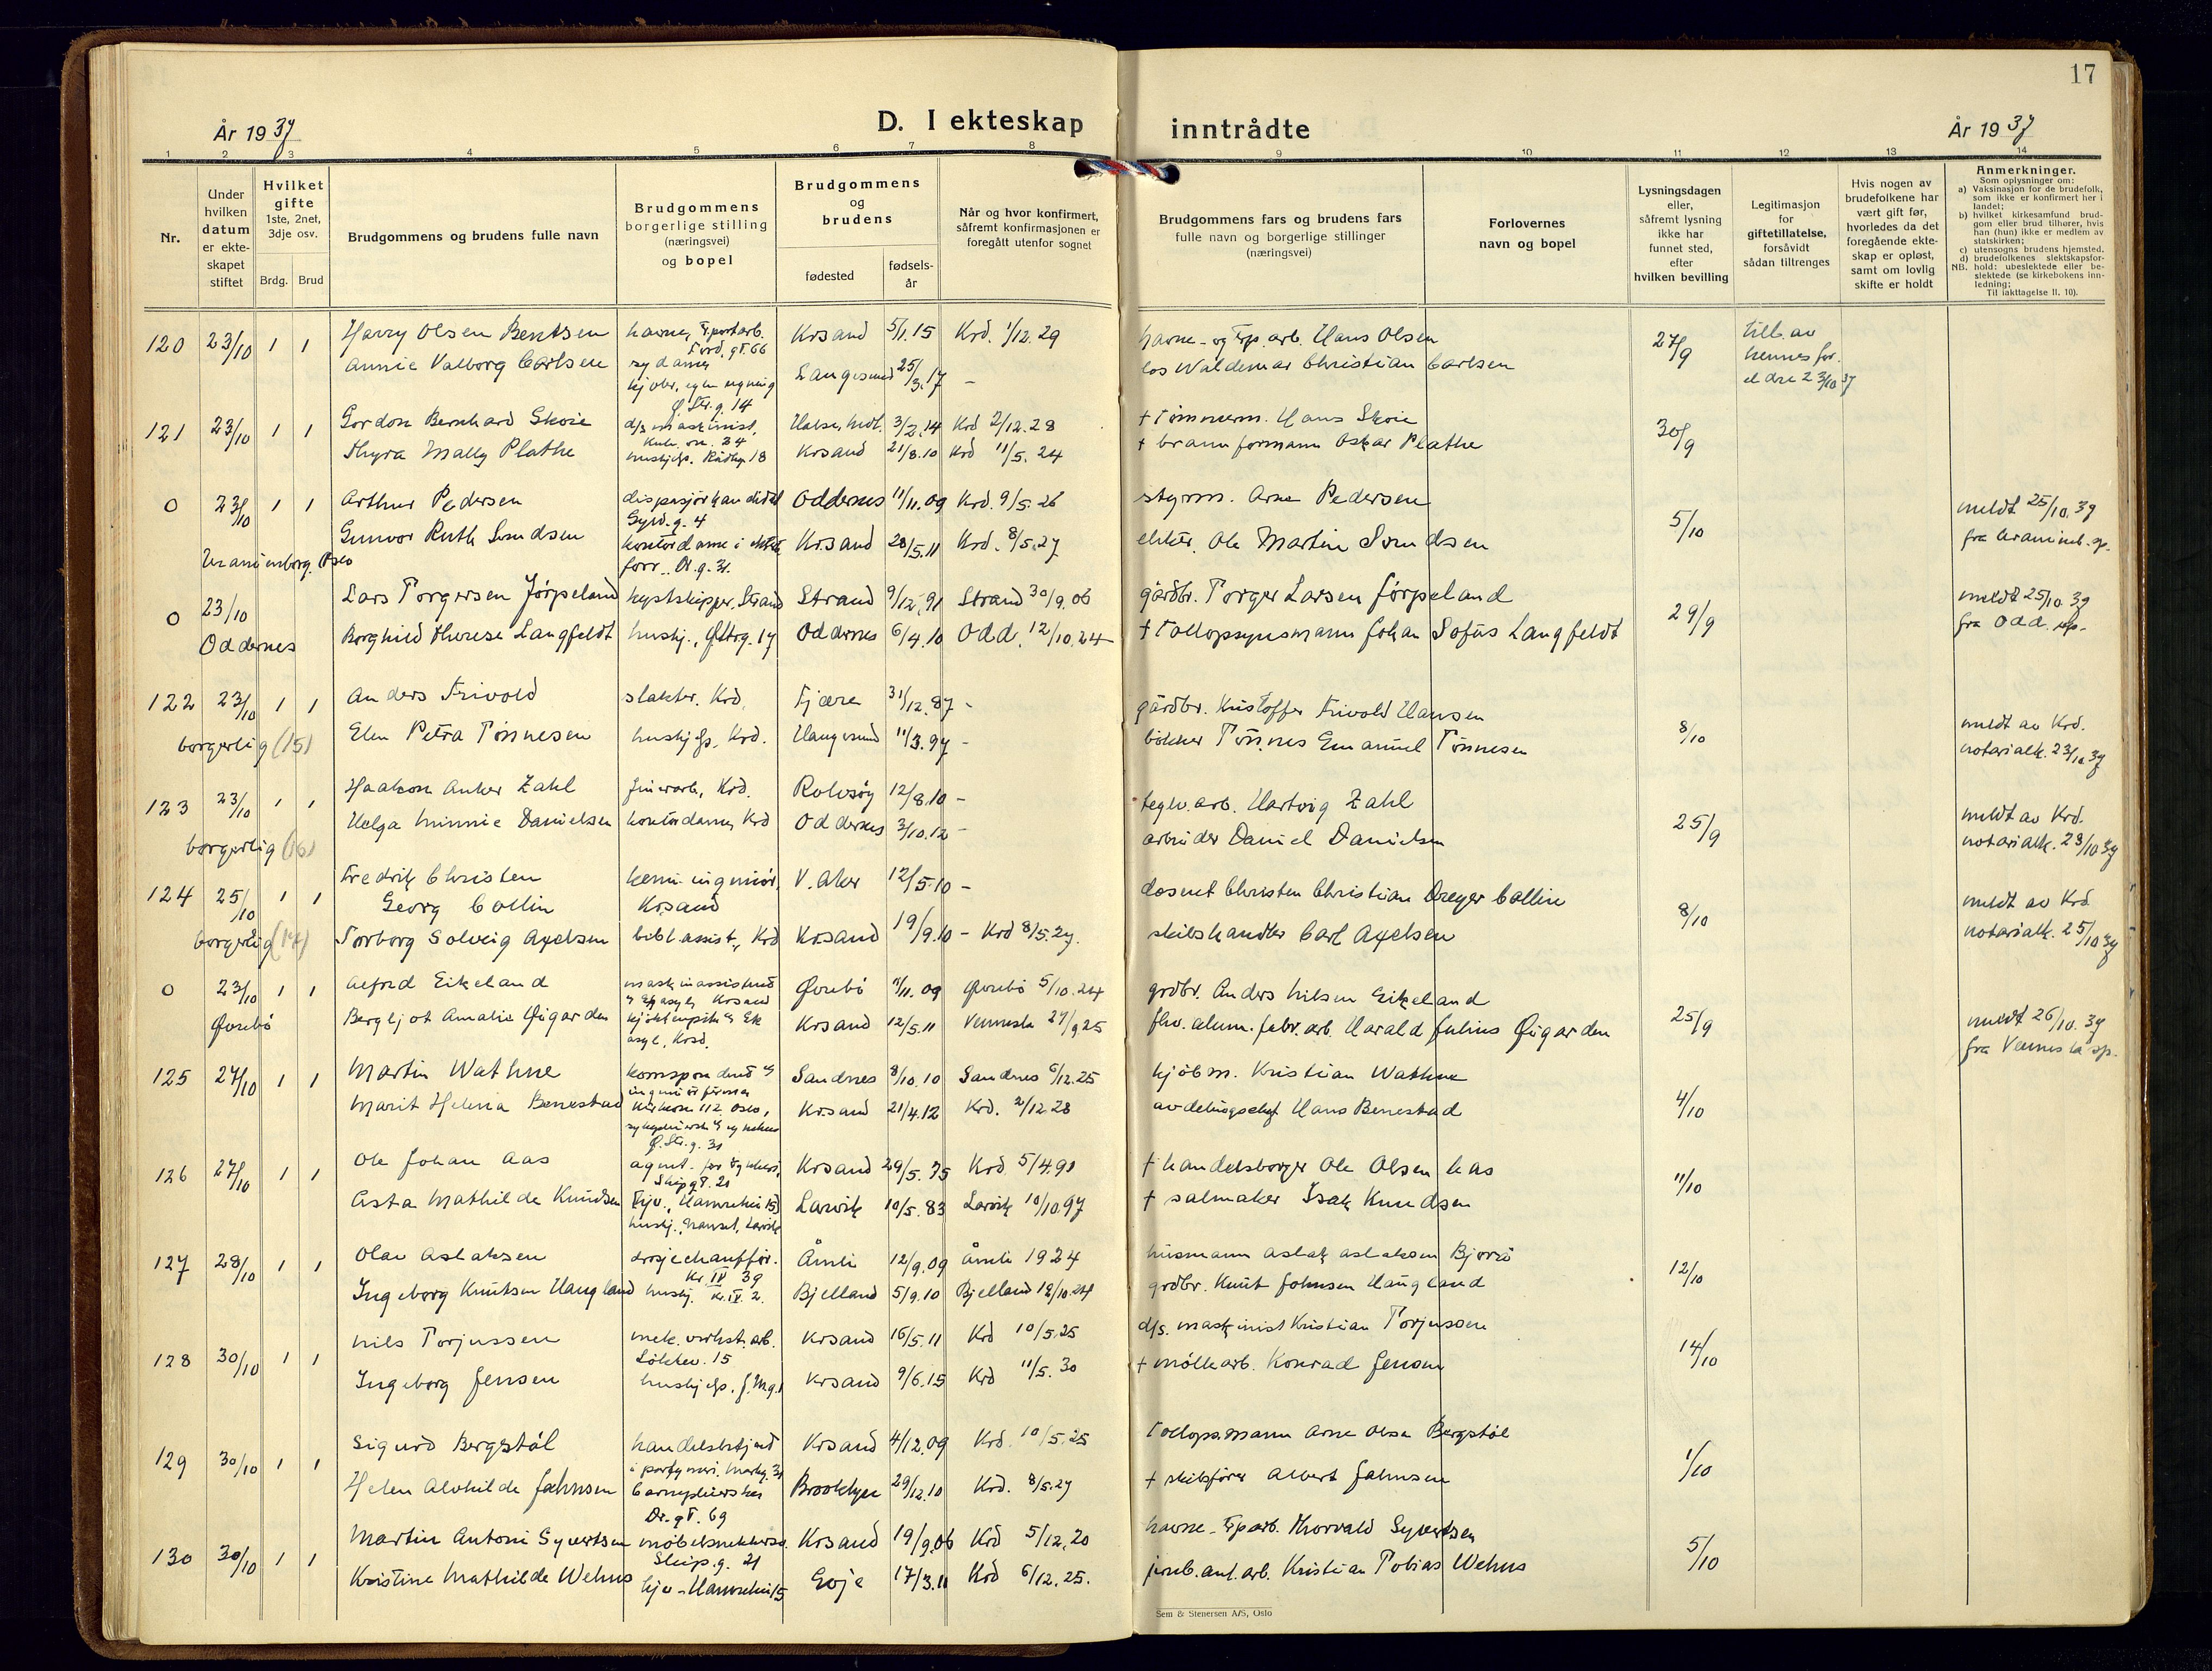 17
År 1937
D. I ekteskap inntrådte
År 1937
1 2 3 4 5 6 7 8 9 10 11 12 13 14
Nr.
Under hvilken datum er ekteskapet stiftet
Hvilket gifte 1ste, 2net, 3dje osv.
Brdg. Brud
Brudgommens og brudens fulle navn
Brudgommens borgerlige stilling (næringsvei) og bopel
Brudgommens og brudens
fødested fødselsår
Når og hvor konfirmert, såfremt konfirmasjonen er foregått utenfor sognet
Brudgommens fars og brudens fars fulle navn og borgerlige stillinger (næringsvei)
Forlovernes navn og bopel
Lysningsdagen eller, såfremt lysning ikke har funnet sted, efter hvilken bevilling
Legitimasjon for giftetillatelse, forsåvidt sådan tiltrenges
Hvis nogen av brudefolkene har vært gift før, hvorledes da det foregående ekteskap er opløst, samt om lovlig skifte er holdt
Anmerkninger.
Som oplysninger om:
a) Vaksinasjon for de brudefolk, som ikke er konfirmert her i landet;
b) hvilket kirkesamfund brudgom eller brud tilhører, hvis han (hun) ikke er medlem av statskirken;
c) utensogns brudens hjemsted.
d) brudefolkenes slektskapsforhold: ubeslektede eller beslektede (se kirkebokens innledning; Til iakttagelse II. 10).
NB.
120 23/10 1 1 Harry Olsen Bentsen Krsand 5/1.15 Krd. 1/12.29 havne- og Trp. arb. Hans Olsen 27/9 till. av
Annie Valborg Carlsen Langesund 25/3.17 - los Waldemar Christian Carlsen hennes for.
eldre 23/10 37
Ø. Str. g. 14
121 23/10 1 1 Gordon Bernhard Skoie d/s maskinist, 3/2.14 Krd 2/12.28 + Tømmerm. Hans Skoie 30/9
Thyra Mally Plathe hushjelp. Rådhg. 18 Krsand 21/8.10 Krd 11/5.24 + brannformann Oskar Plathe
0 23/10 1 1 Arthur Pedersen Oddernes 11/11.09 Krd. 9/5.26 styrm. Arne Pedersen 5/10 meldt 25/10.37
Gyld. g. 4
Gunvor Ruth Svendsen kontordame i Krsand 28/5.11 Krd. 8/5.27 elektr. Ole Martin Svendsen
Uranienborg. Oslo
0 23/10 Lars Torgersen Jørpeland Strand Strand 9/12.91 Strand 30/9.06 gårdbr. Torger Larsen Jørpeland 29/9 meldt 25/10 37
Oddernes Borghild Therese Langfeldt hushj., Ø.Strg. 17 Oddernes 6/4.10 Odd. 12/10.24 + Tollopsynsmann Johan Sofus Langfeldt fra Odd. sp.
122 23/10 1 1 Anders Frivold slakter. Krd. Fjære 31/12.87 - gårdbr. Kristoffer Frivold Hansen 8/10 meldt av Krd.
borgerlig (15) Elen Petra Tønnesen hushjelp, Krd. Haugesund 11/3.97 - bøkker Tønnes Emanuel Tønnesen notarialk. 23/10 37
123 23/10 1 1 Haakon Anker Zahl finerarb, Krd. Rolvsøy 12/8.10 - teglv. arb. Hartvig Zahl 25/9 meldt av Krd.
borgerlig (16) Helga Minnie Danielsen kontordame, Krd Oddernes 3/10.12 - arbeider Daniel Danielsen notarialk. 23/10 37
124 25/10 1 1 Fredrik Christen kemi. ingeniør, V. Aker 12/5.10 - dosent Christen Christian Dreyer Collin 8/10 meldt av Krd.
Georg Collin Krsand
borgerlig (17) Torborg Solveig Axelsen bibl. assist., Krd Krsand 19/9.10 - Krd 8/5.27. skibshandler Carl Axelsen notarialk. 25/10 37
0 23/10 1 1 Alfred Eikeland maskinassistent Øvrebø 11/11.09 Øvrebø 5/10.24 grdbr. Anders Nilsen Eikeland 25/9
Øvrebø Bergljot Amalie Øigarden Krsand 12/5.11 Vennesla 27/9 25 fhv. alum. fabr. arb. Harald Julius Øigarden meldt 26/10.37
asyl, Krsd. fra Vennesla sp.
125 27/10 1 1 Martin Wathne Sandnes 8/10.10 Sandnes 6/12.25 kjøbm. Kristian Wathne 4/10
Marit Helena Benestad Oslo, Krsand 21/4.12 Krd. 2/12 28 avdelingschef Hans Benestad
Ø. Str. g. 31
126 27/10 1 1 Ole Johan Aas agent Krsand 29/5.75 Krd 5/4.91 + handelsborger Ole Olsen Aas 11/10
Skipgt. 21
Asta Mathilde Knudsen Larvik 10/5.83 Larvik 10/10.97 + salmaker Isak Knudsen
127 28/10 1 1 Olav Aslaksen drosjechauffør. Åmli 12/9.09 Åmli 1924 husmann Aslak Aslaksen 12/10
Kr. IV 39
Ingeborg Knutsen Haugland hushj. Kr. IV. 2. Bjelland 5/9.10 Bjelland 12/10.24 grdbr. Knut Johnsen Haugland
128 30/10 1 1 Nils Torjussen mek. verkst. arb. Krsand 16/5.11 Krd 10/5.25 d/s. maskinist Kristian Torjussen 14/10
Ingeborg Jensen hushjelp. Krsand 9/6.15 Krd 11/5.30 + møllearb. Konrad Jensen
129 30/10 1 1 Sigurd Bergstøl handelsbetjent Krsand 4/12.09 Krd. 10/5.25 Tollopsmann Arne Olsen Bergstøl 1/10
Helen Alvhilde Jahnsen barnepleierske Brooklyn 29/12.10 Krd. 8/5.27 + skibsfører Albert Jahnsen
Dr. gt. 69
130 30/10 1 1 Martin Antoni Syvertsen Krsand 19/9.06 Krd 5/12.20 havne- Trp arb. Thorvald Syvertsen 5/10
Skip. g. 21
Kristine Mathilde Wehus Evje 17/3.11 Krd 6/12.25. jernb. anl. arb. Kristian Tobias Wehus
Sem & Stenersen A/S, Oslo